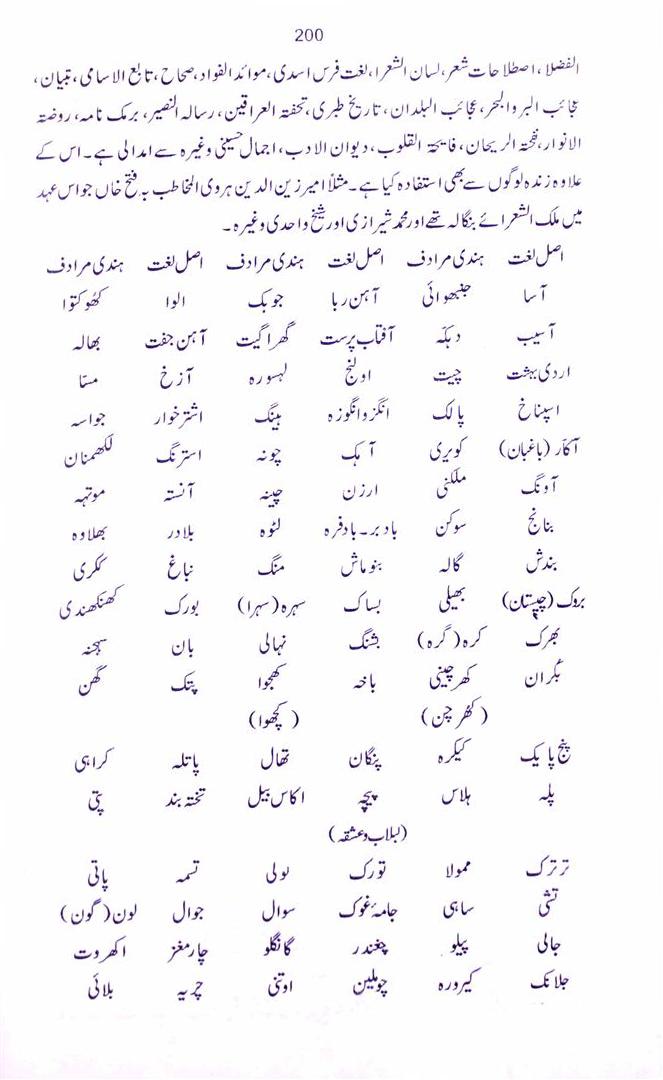 200
الفضلا، اصطلاحات شعر، لسان الشعرا، لغت فرس اسدی، موائد الفواد، صحاح، تابع الاسامی، تبیان،
عجائب البر والبحر، عجائب البلدان، تاریخ طبری، تحفتہ العراقین، رسالہ النصیر، برمک نامہ، روضتہ
الانوار، نفحتہ الریحان، فایحتہ القلوب، دیوان الادب، اجمال حسینی وغیرہ سے امدالی ہے۔ اس کے
علاوہ زندہ لوگوں سے بھی استفادہ کیا ہے۔ مثلاً امیر زین الدین ہروی المخاطب بہ فتح خاں جو اس عہد
میں ملک الشعرائے بنگالہ تھے اور محمد شیرازی اور شیخ واحدی وغیرہ۔
اصل لغت ہندی مرادف اصل لغت ہندی مرادف اصل لغت ہندی مرادف
آسا جنبھوائی آہن ربا جوبک الوا کھوکتوا
آسیب دہکہ آفتاب پرست گھراگیت آہن جفت بھالہ
اردی بہشت چیت اولنج لہسورہ آزخ مسّا
اسپناخ پالک انگژ و انگوزہ ہینگ اشتر خوار جواسہ
آکّار (باغبان) کویری آہک چونہ استرنگ لکھمنان
آونگ ملکنی ارزن چینہ آنستہ موتہہ
بنانج سوکن بادبر۔ بادفرہ لٹوہ بلادر بھلاوہ
بندش گالہ بنوماش منگ نباغ ککری
بروک (چیستان) بھیلی بساک سہرہ (سہرا) بورک کھنکھندی
بھرک کرہ (گرہ) بشنگ نہالی بان سہجنہ
بگران کھرچینی باخہ کھجوا پتک گھن
(کھرچن) (کچھوا)
پنج پایک کیکرہ پنگان تھال پاتلہ کراہی
پلہ ہلاس پیچہ اکاس بیل تختہ بند پتی
(لبلاب وعشقہ)
ترترک ممولا تورک لولی تسمہ پاتی
تشی ساہی جامۂ غوک سوال جوال لون (گون)
جالی پیلو چغندر گانگلو چارمغز اکھروت
جلانک کیرورہ چوملین اوتنی چربہ بلائی